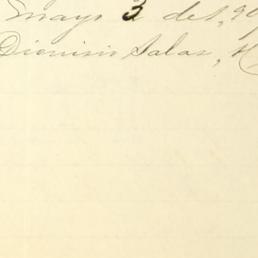 mayo 3 de 1,89
Dionisio Salas, M